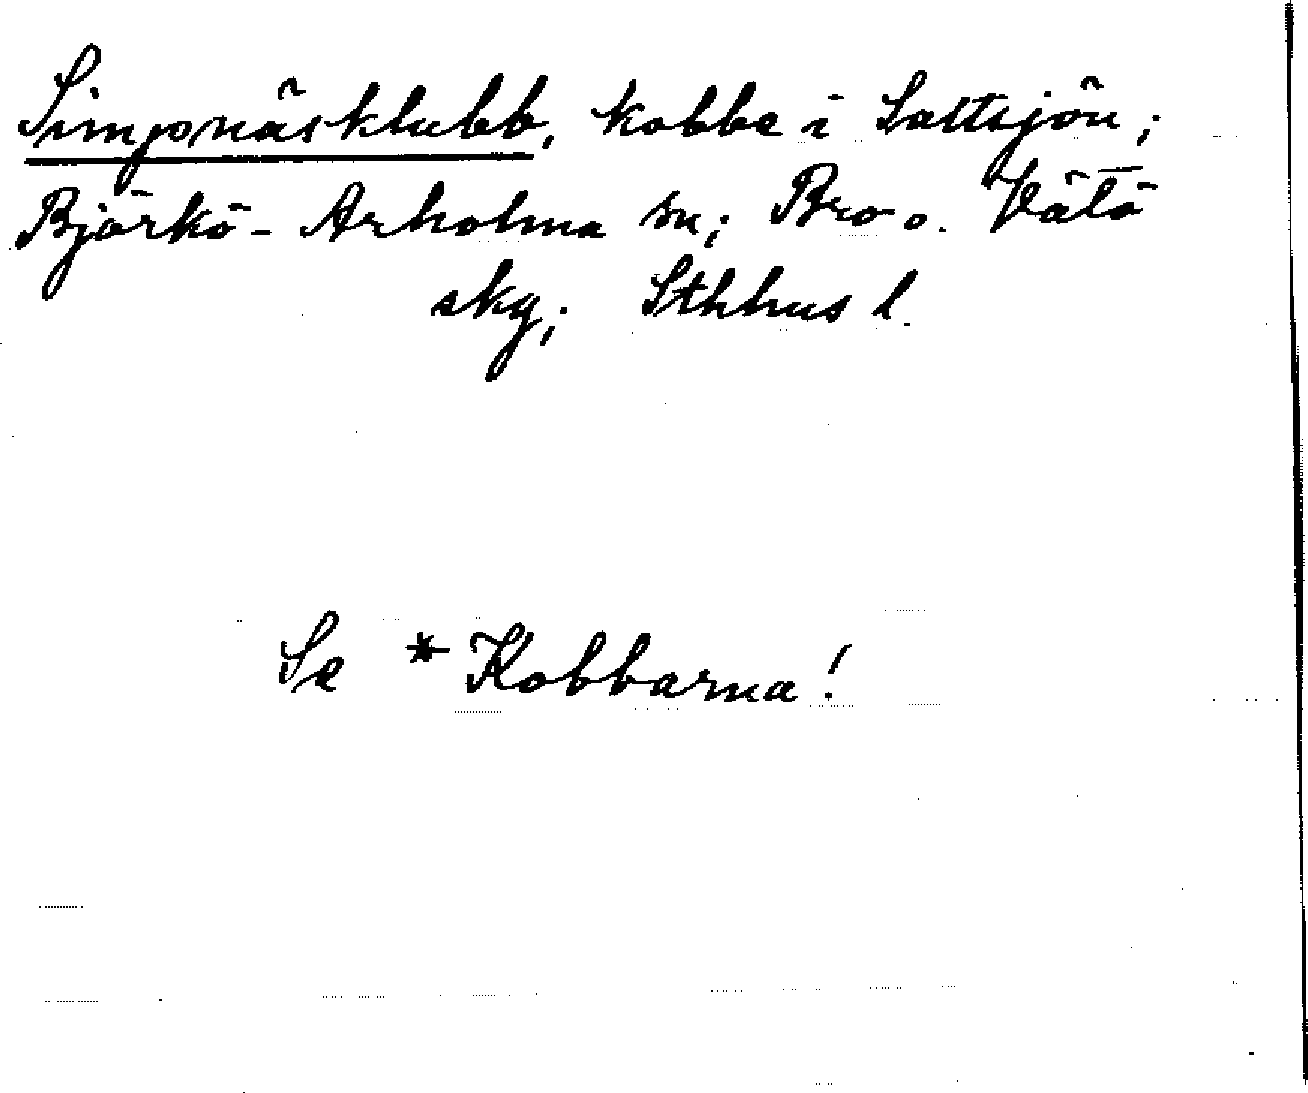 Simpnäsklubb, kobbe i Saltsjön;
Björkö-Arholma sn; Bro o. Vätö
skg; Sthhus l.
Se *Kobbarna!